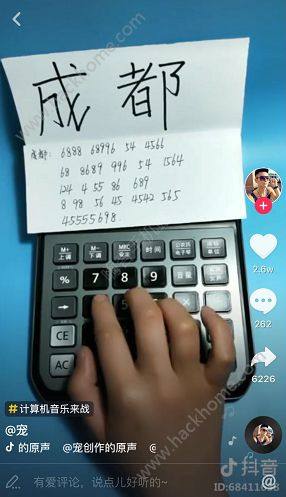 成都
成都: 6888 68986 54 4566
68 8689 996 54 1564
124 4 55 86 689
98 56 45 4542 565
45555698
M+ 上调
M- 下调
MRC
% 7 8 9 音量
→
CE
AC
2.6w
262
6226
#计算机音乐来战
@宠
的原声 @宠创作的原声
有爱评论，说点儿好听的~
抖音
www.hackhome.com